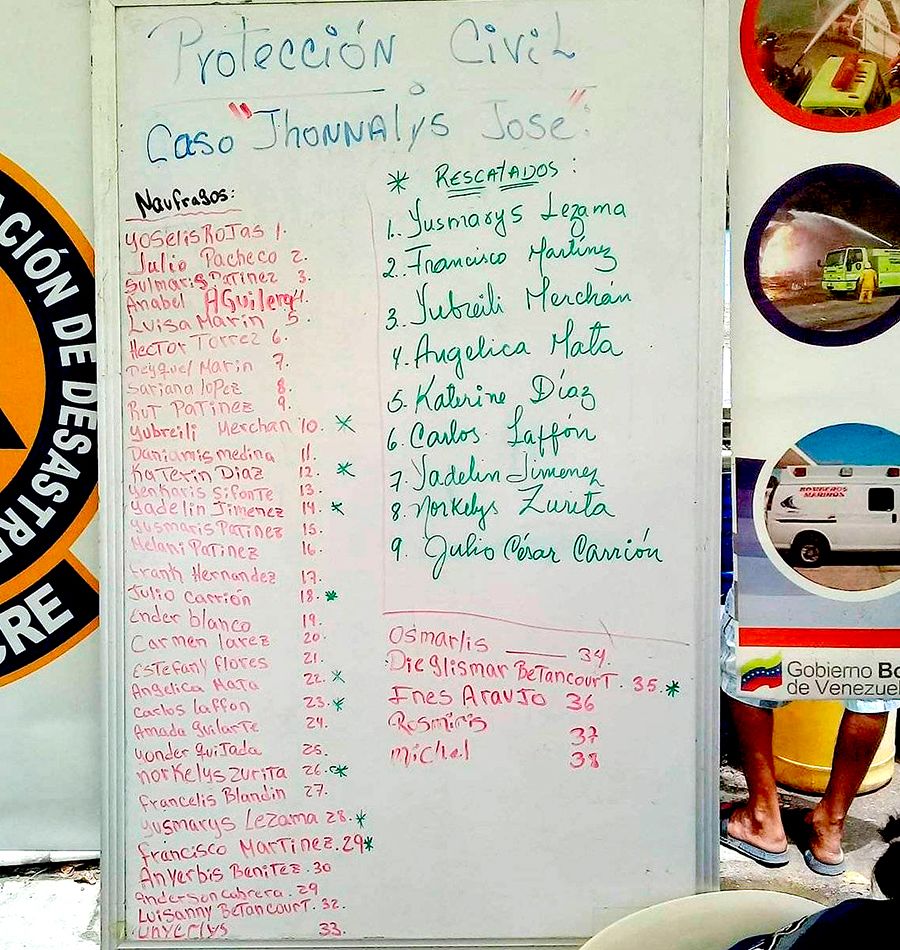 Protección Civil
Caso "Jhonnalys Jose":
Naufragos:
YOSELIS ROJAS 1.
Julio Pacheco 2.
Sulmaris Patinez 3.
Anabel AGuilera 4.
Luisa Marin 5.
Hector Torrez 6.
Deyquel Marin 7.
Sariana lopez 8.
Rut Patinez 9.
Yubreili Merchan 10. *
Daniamis medina 11.
Katerin Diaz 12. *
Yenkaris Sifonte 13.
Yadelin Jimenez 14. *
Yusmaris Patinez 15.
Melani Patinez 16.
Frank Hernandez 17.
Julio Carrión 18. *
Ender blanco 19.
Carmen larez 20.
Estefany flores 21.
Angelica Mata 22. *
Carlos laffon 23. *
Amada Guilarte 24.
Yonder Quijada 25.
norkelys zurita 26. *
francelis Blandin 27.
Yusmarys Lezama 28. *
francisco Martinez. 29 *
Anyerbis Benitez. 30
anderson cabrera. 29
Luisanny Betancourt. 32.
unyerlys 33.
* RESCATADOS:
1. Yusmarys Lezama
2. Francisco Martínz
3. Yubreili Merchán
4. Angelica Mata
5. Katerine Díaz
6. Carlos Laffón
7. Yadelin Jimenez
8. Norkelys Zurita
9. Julio César Carrión
Osmarlis — 34.
Dieglismar Betancourt. 35. *
Ines Araujo 36
Rosmiris 37
michel 38
ACIÓN DE DESASTRE
CRE
BOMBEROS
MARINOS
Gobierno Bo
de Venezuel